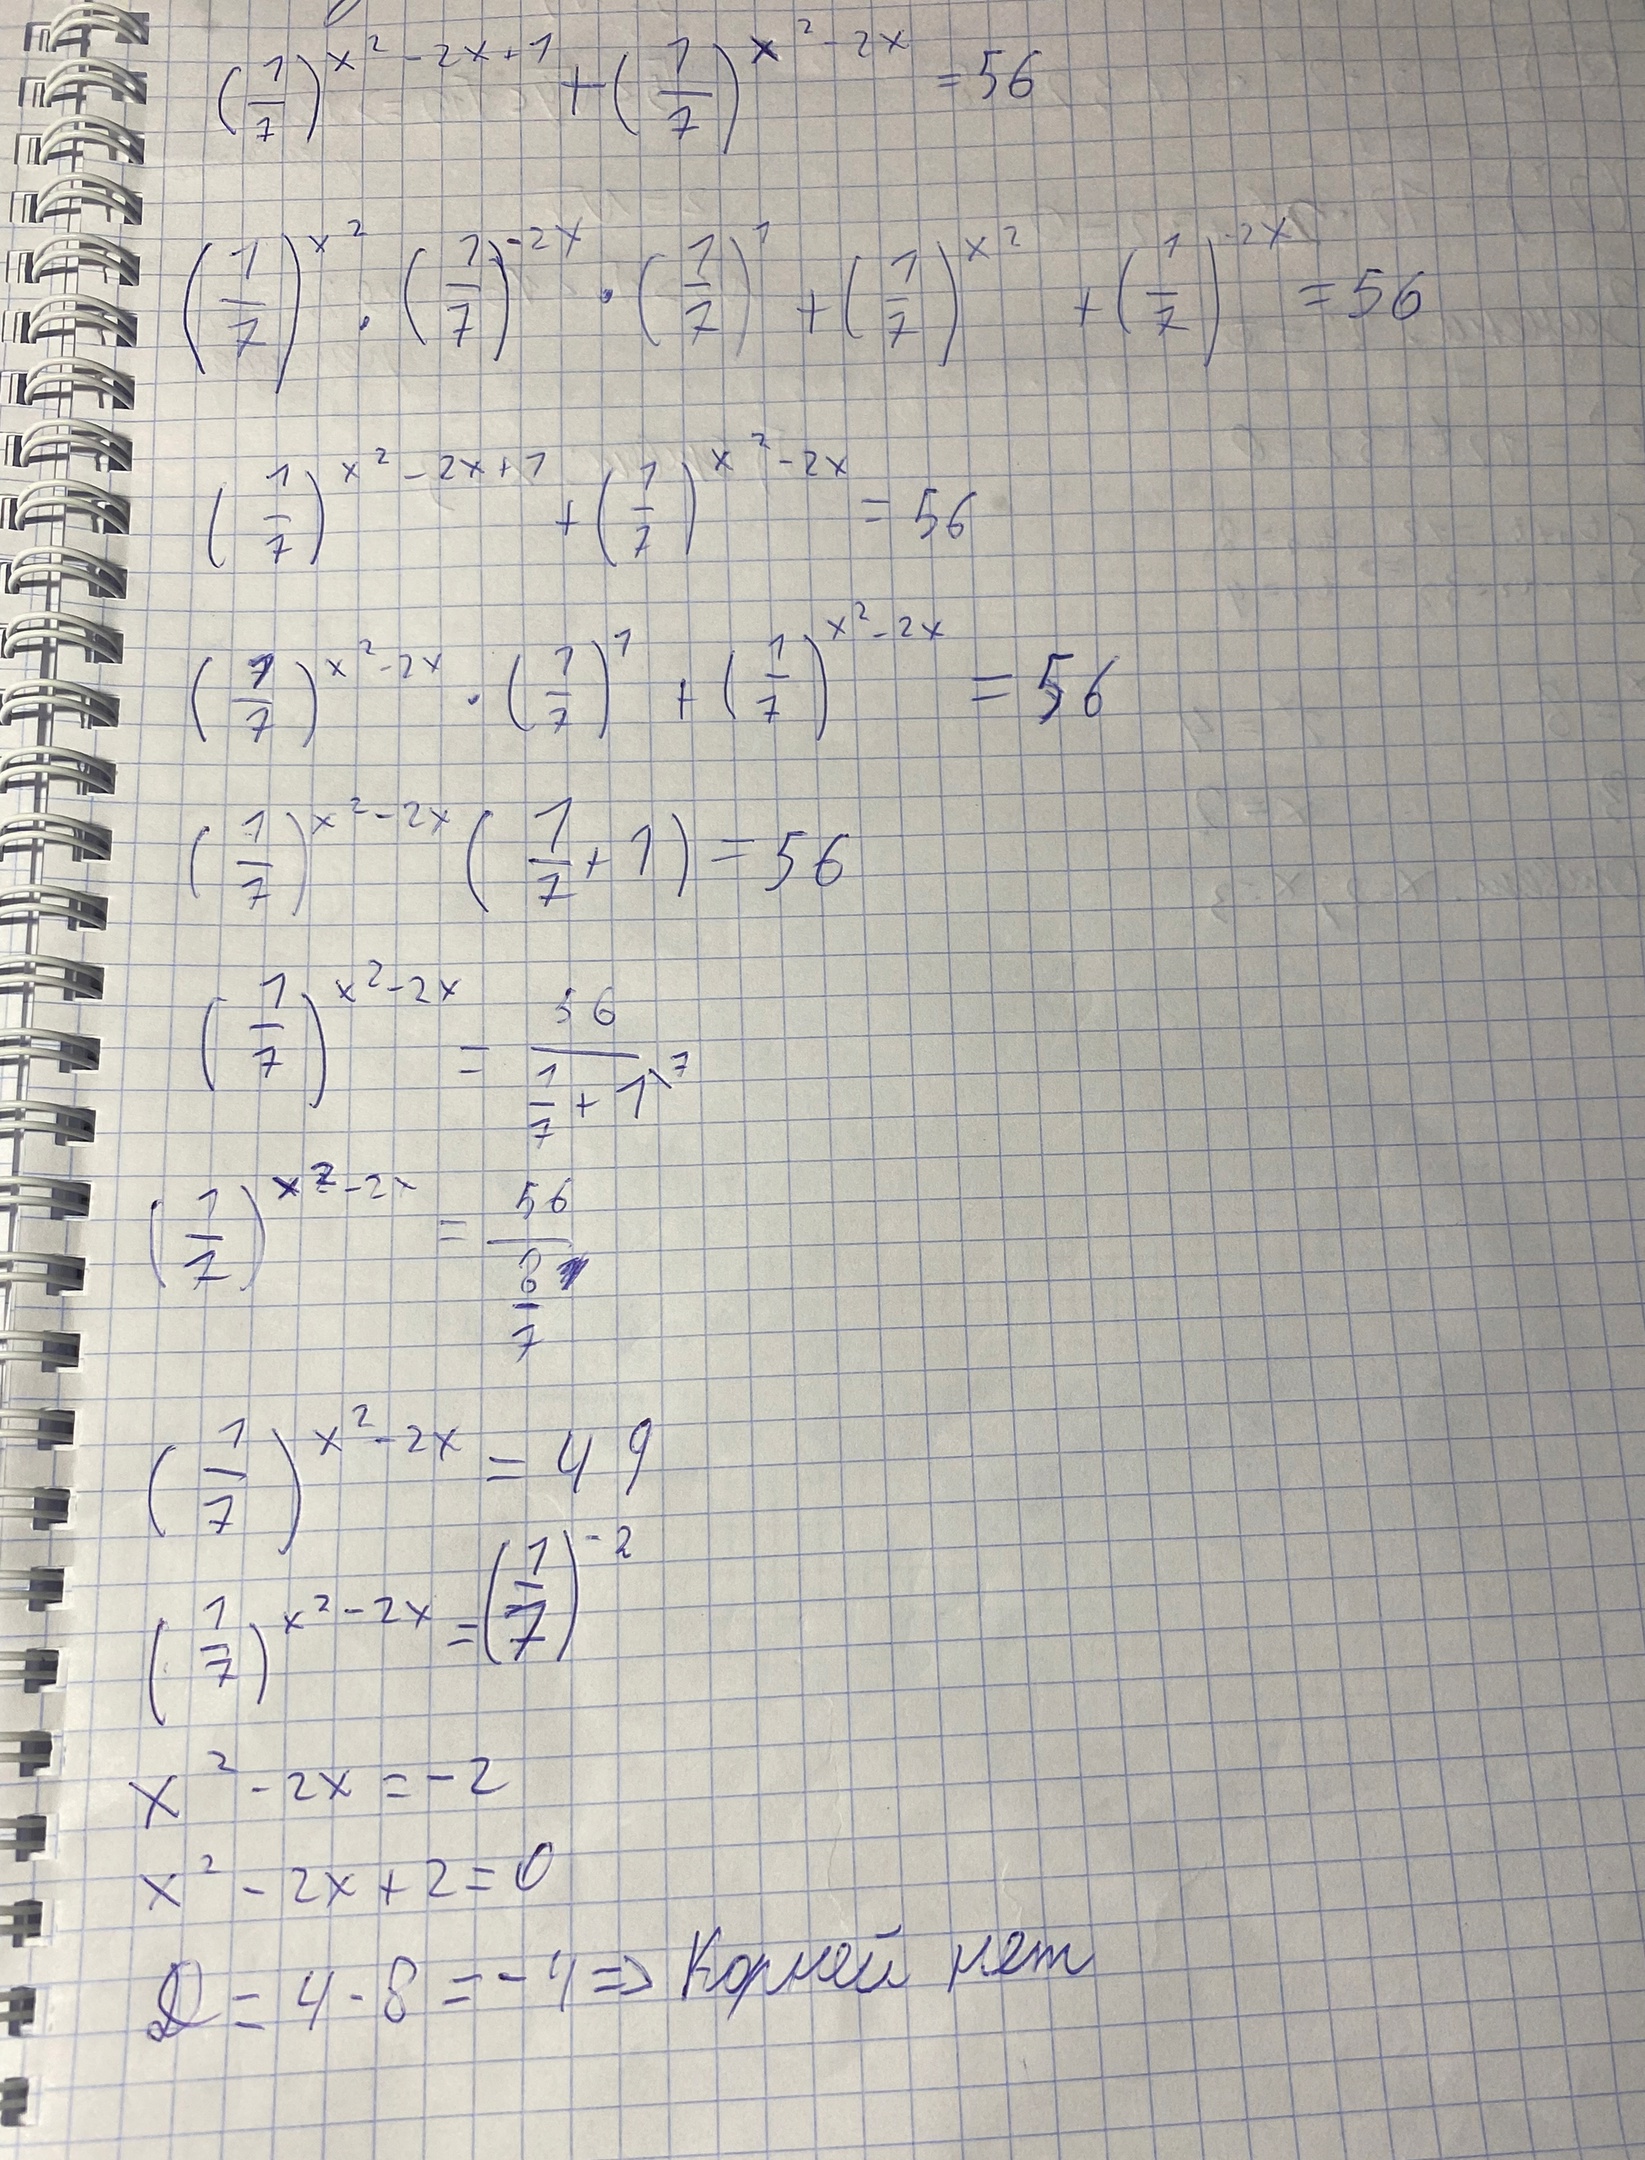 (1/7)^x²-2x+1 + (1/7)^x²-2x = 56
(1/7)^x² · (1/7)^-2x · (1/7)^1 + (1/7)^x² + (1/7)^-2x = 56
(1/7)^x²-2x+1 + (1/7)^x²-2x = 56
(1/7)^x²-2x · (1/7)^1 + (1/7)^x²-2x = 56
(1/7)^x²-2x (1/7 + 1) = 56
(1/7)^x²-2x = 56/(1/7 + 1\7)
(1/7)^x²-2x = 56/(8/7)
(1/7)^x²-2x = 49
(1/7)^x²-2x = (1/7)^-2
x² - 2x = -2
x² - 2x + 2 = 0
D = 4 - 8 = -4 => Корней нет